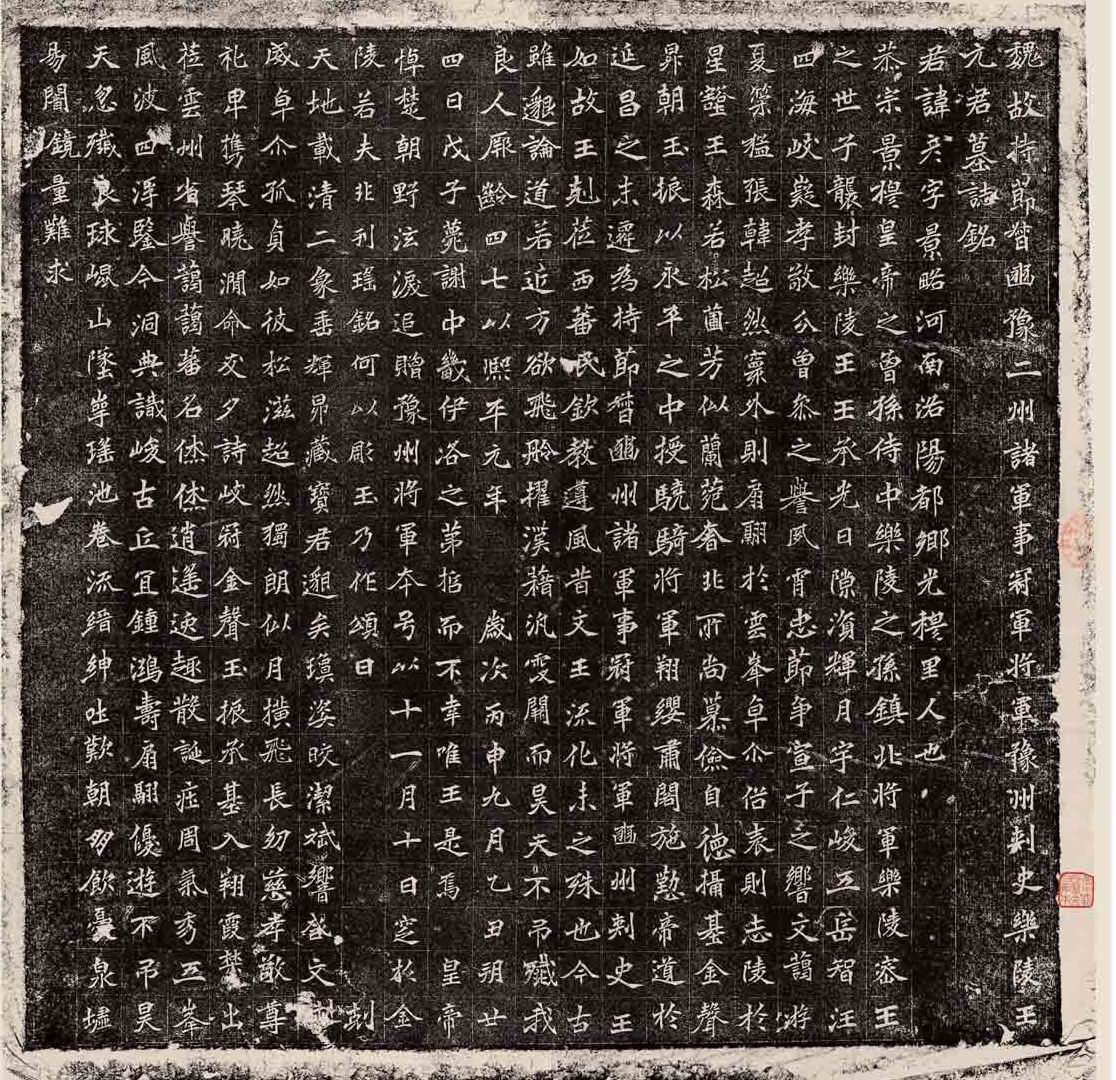 魏故持節督豳豫二州諸軍事冠軍將軍豫州刺史樂陵王
元君墓誌銘
君諱彥字景略河南洛陽都鄉光穆里人也
恭宗景穆皇帝之曾孫侍中樂陵之孫鎮北將軍樂陵密王
之世子襲封樂陵王王承光日隙濱輝月宇仁峻五岳智汪
四海岐嶷孝敬分曾參之譽夙宵忠節爭宣子之響文藹遊
夏策猛張韓超然寰外則扇翮於雲峯卓尒俗表則志陵於
星壑王森若松蘭芳似蘭范奢非所尚慕儉自德攝基金聲
昇朝玉振以永平之中授驍騎將軍翔纓肅閣施懃帝道於
延昌之末遷為持節督豳州諸軍事冠軍將軍豳州刺史王
如故王剋莅西蕃民欽教遵風昔文王流化未之殊也今古
雖邈論道若近方欲飛聆擢漢藉汎雯開而昊天不弔殲我
良人厥齡四七以熙平元年歲次丙申九月乙丑朔廿
四日戊子薨謝中畿伊洛之第掊而不幸唯王是焉皇帝
悼楚朝野泫淚追贈豫州將軍本号以十一月十日窆於金
陵若夫非刊瑤銘何以彫玉乃作頌曰
天地載清二象垂輝昴藏寶君邈矣瓊姿皎潔斌響盛文
威卓尒孤貞如彼松滋超然獨朗似月橫飛長幼慈孝敬尊
礼卑携琴曉澗命友夕詩岐嶷金聲玉振承基入翔霞禁出
莅雲州省譽藹藹蕃名烋烋逍遙遠趣散誕庄周氣秀五峯
風波四浮鑒今洞典識峻古丘宜鍾鴻壽扇翮優遊不弔昊
天忽殲良球崐山墜崋瑤池卷流縉紳吐歎朝野飲憂泉墟
易闇鏡量難求